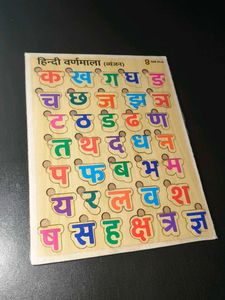 हिन्दी वर्णमाला (व्यंजन)
क ख ग घ ङ
च छ ज झ ञ
ट ठ ड ढ ण
त थ द ध न
प फ ब भ म
य र ल व श
ष स ह क्ष त्र ज्ञ